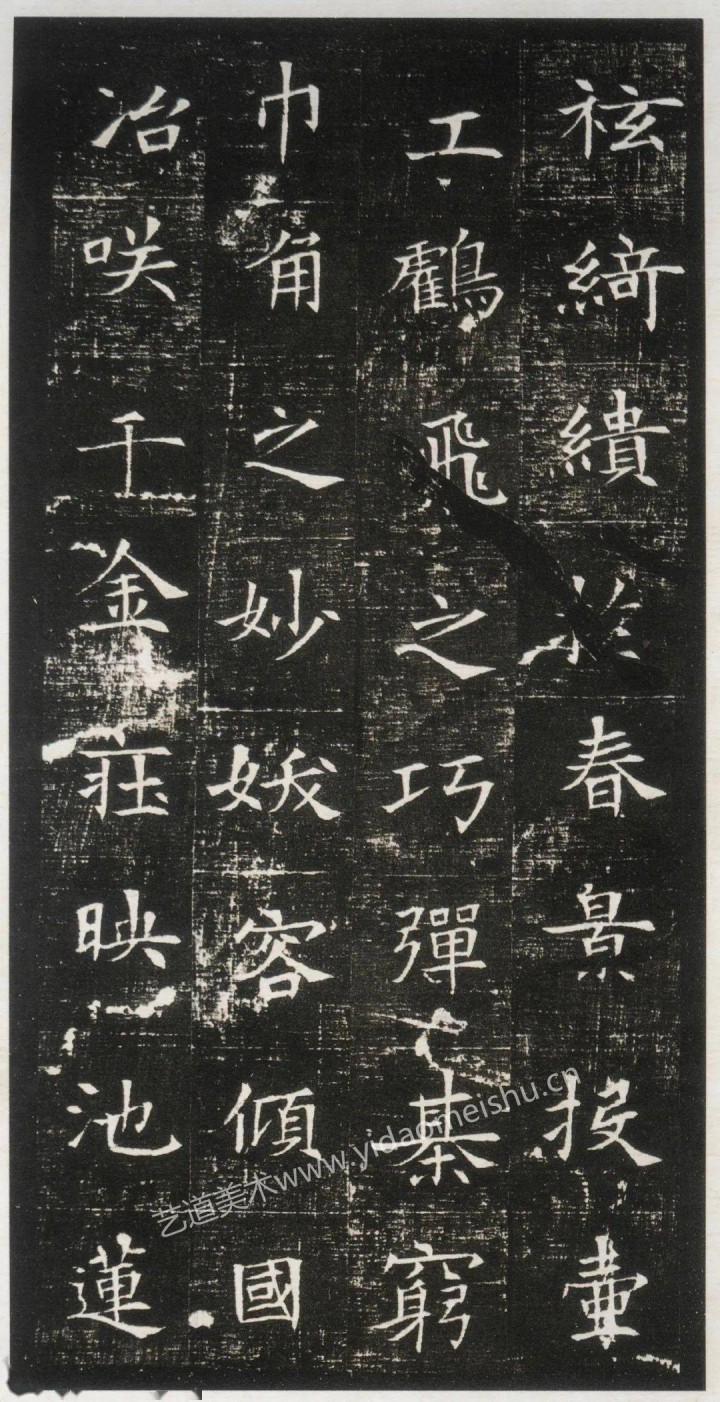 袨綺繢於春景投壺
工鸖飛之巧彈棊窮
巾角之妙妖容傾國
冶咲千金莊映池蓮
艺道美术www.yidaomeishu.cn